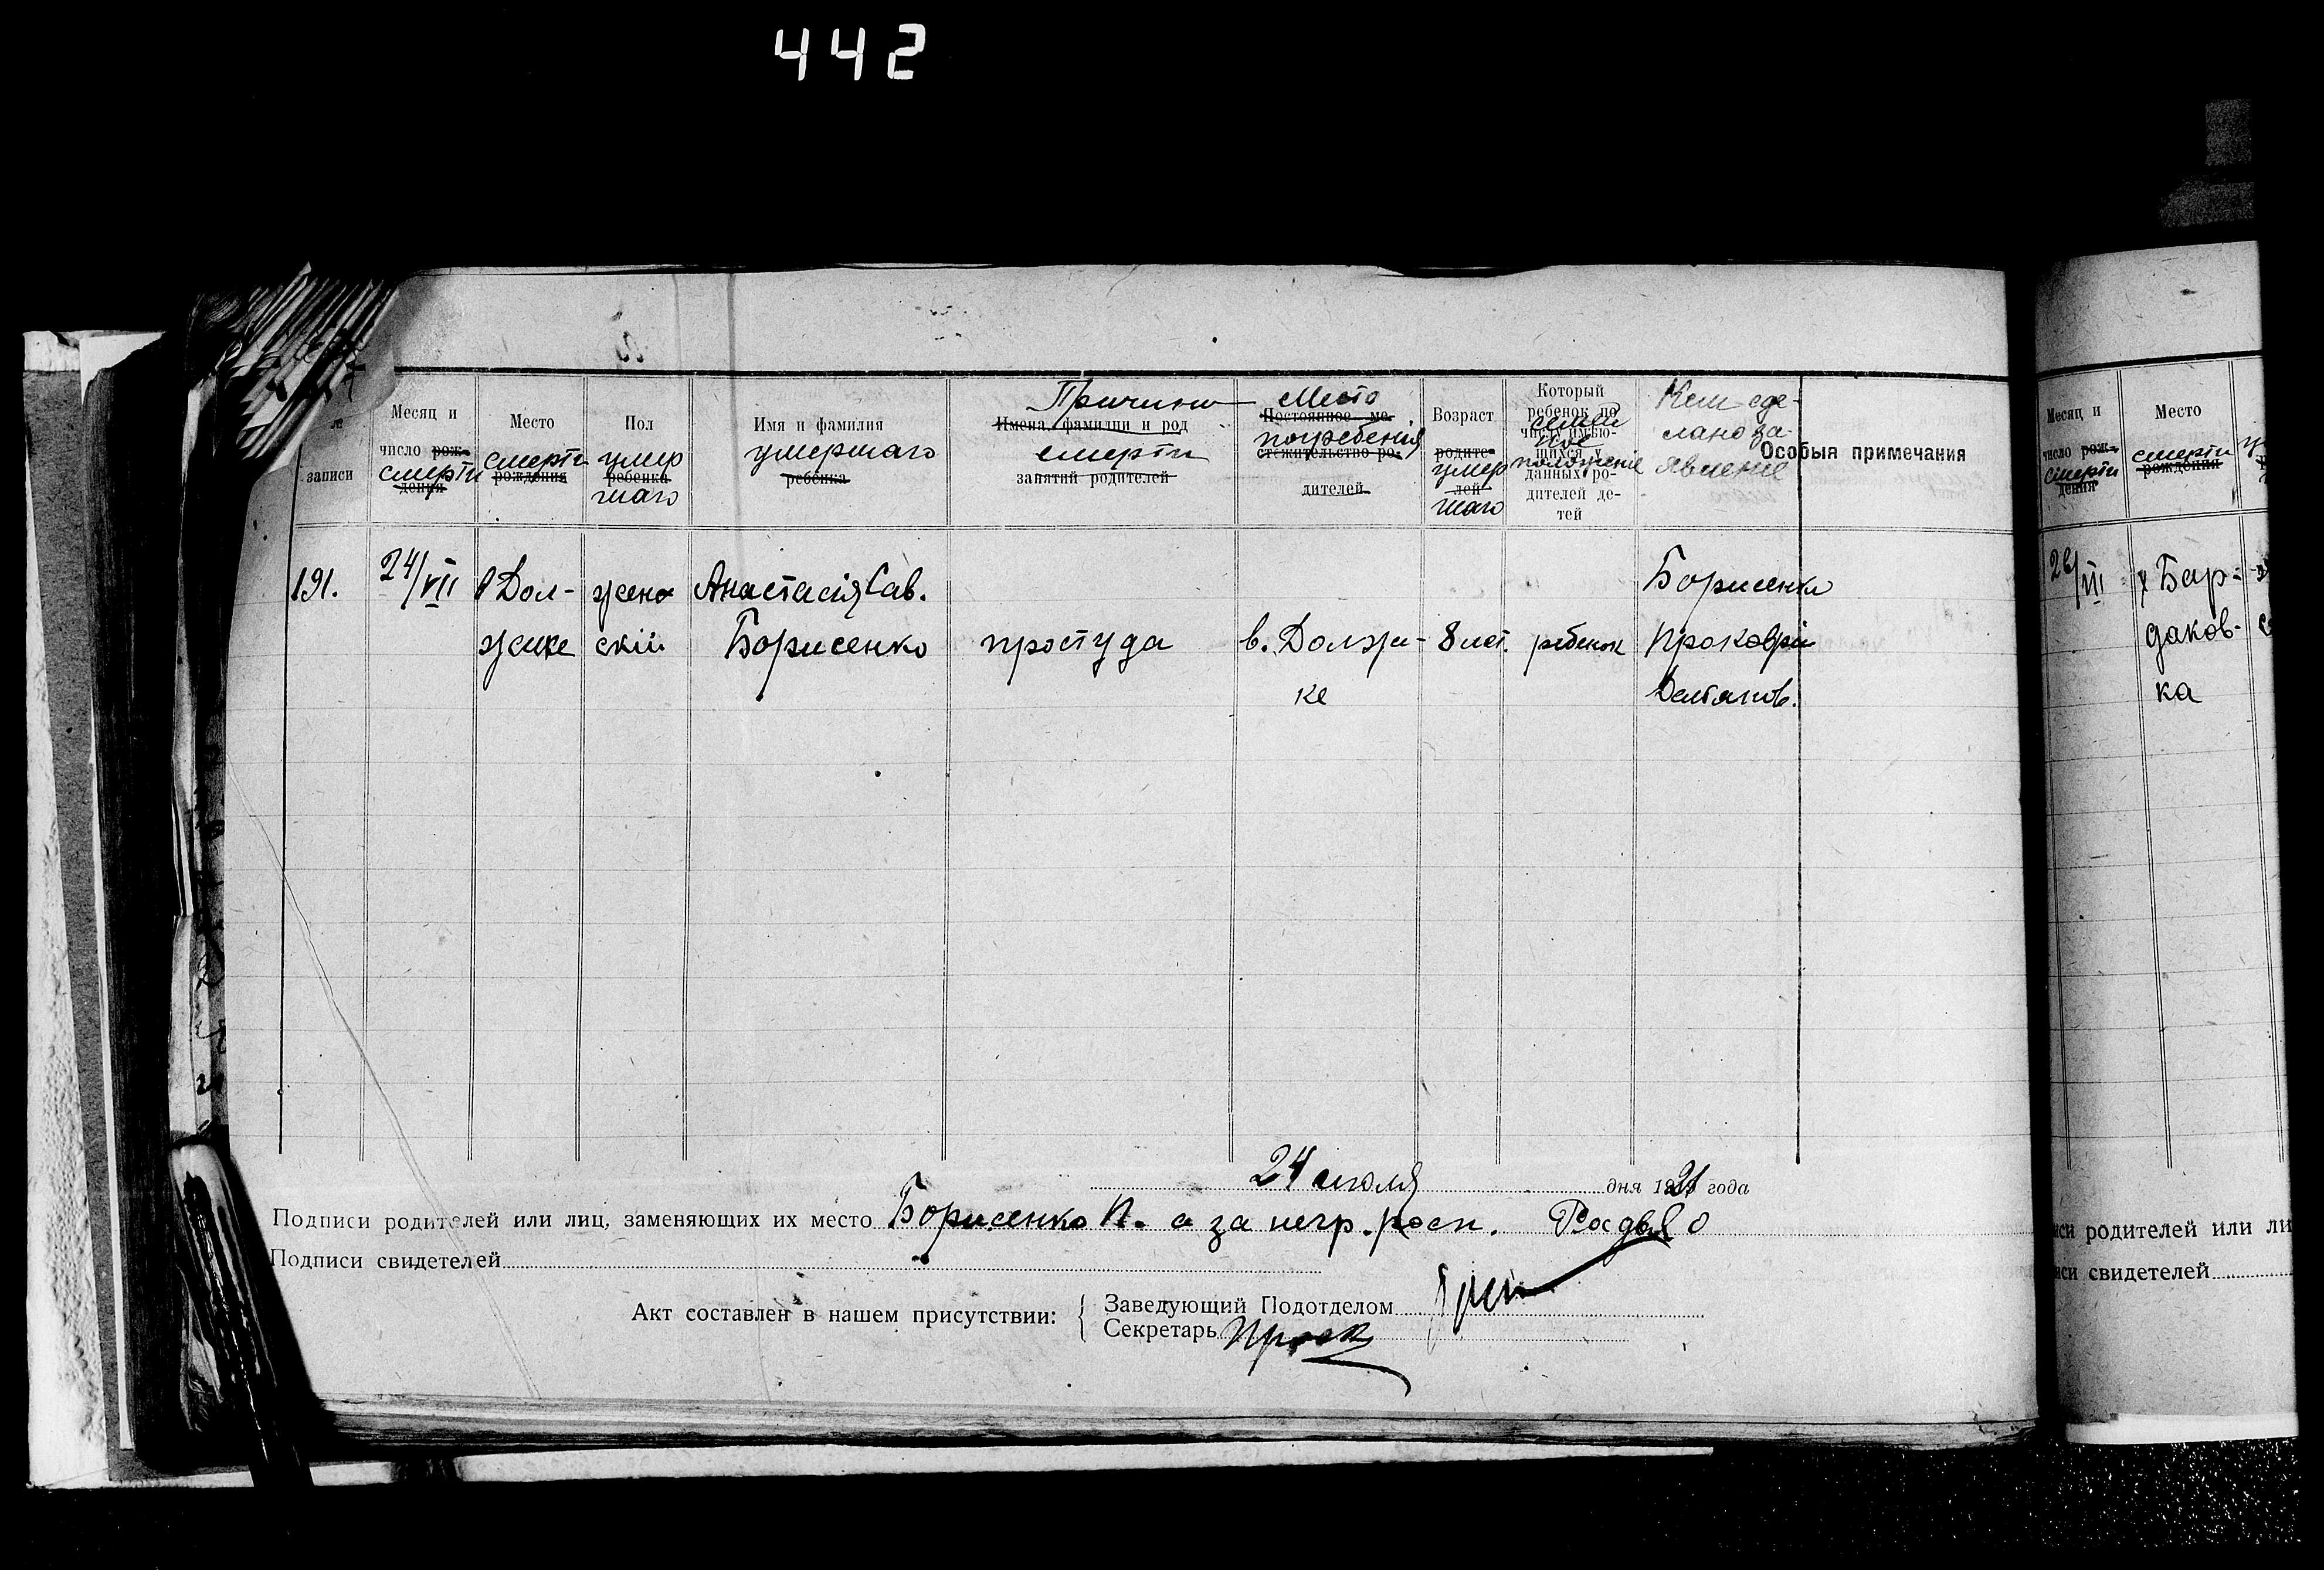 442
№ записи
Месяц и число рождения смерти
Место рождения смерти
Пол ребенка умершаго
Имя и фамилия ребенка умершаго
Имена, фамилии и род занятий родителей Причина смерти
Постоянное местожительство родителей Место погребенія
Возраст родителей умершаго
Который ребенок по числу имеющихся у данных родителей детей семейное положеніе
Кем сделано заявление
Особыя примечания
191.
24/VII
Дол-
жике
женс
скій
Анастасія Сав.
Борисенко
простуда
в. Должи-
ке
8 лет.
ребенок
Борисенко
Прокофій
24 июля дня 1921 года
Подписи родителей или лиц, заменяющих их место Борисенко П. а за негр. росп.
Подписи свидетелей
Акт составлен в нашем присутствии:
Заведующий Подотделом
Секретарь
Месяц и число рождения смерти
Место рождения смерти
26/VII
Бар-
даков-
ка
родителей или ли
свидетелей